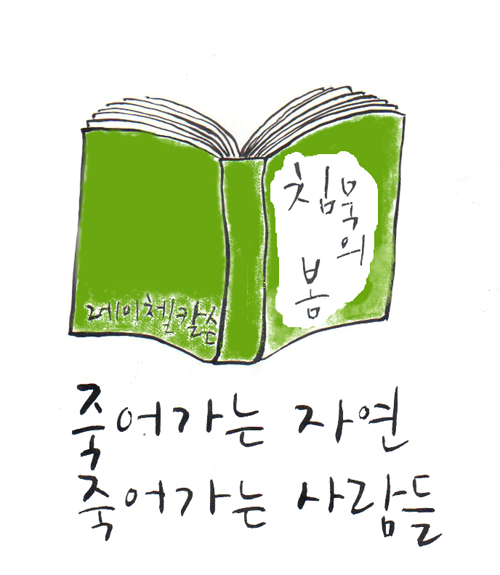 침묵의
봄
레이첼카슨
죽어가는 자연
죽어가는 사람들